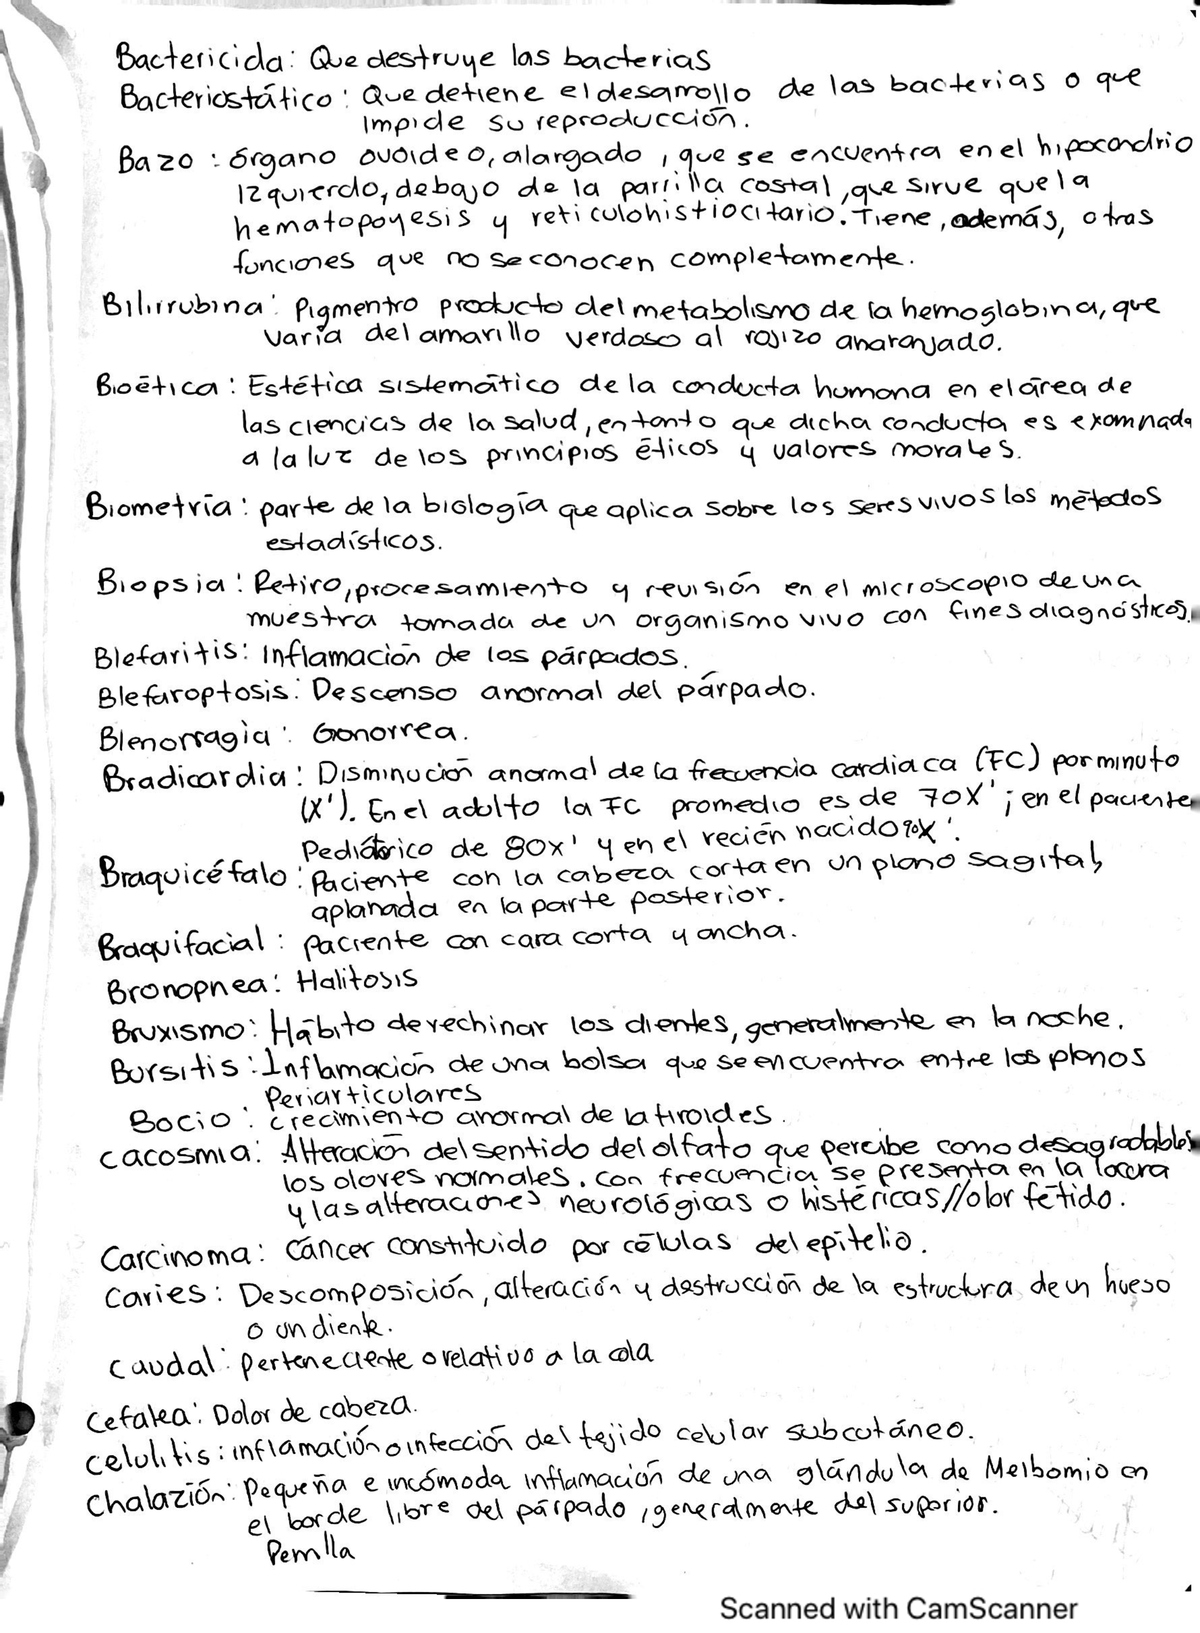 Bactericida: Que destruye las bacterias
Bacteriostático: Que detiene el desarrollo de las bacterias o que
impide su reproducción.
Bazo: órgano ovoideo, alargado, que se encuentra en el hipocondrio
Izquierdo, debajo de la parrilla costal, que sirve que la
hematopoyesis y reticulohistiocitario. Tiene, además, otras
funciones que no se conocen completamente.
Bilirrubina: Pigmentro producto del metabolismo de la hemoglobina, que
varía del amarillo verdoso al rojizo anaranjado.
Bioética: Estética sistemático de la conducta humana en el área de
las ciencias de la salud, en tanto que dicha conducta es examnada
a la luz de los principios éticos y valores morales.
Biometría: parte de la biología que aplica sobre los seres vivos los métodos
estadísticos.
Biopsia: Retiro, procesamiento y revisión en el microscopio de una
muestra tomada de un organismo vivo con fines diagnósticos.
Blefaritis: Inflamación de los párpados.
Blefaroptosis: Descenso anormal del párpado.
Blenorragia: Gonorrea.
Bradicardia: Disminución anormal de la frecuencia cardiaca (FC) por minuto
(X'). En el adulto la FC promedio es de 70X'; en el paciente
Pediátrico de 80x' y en el recién nacido 90X'.
Braquicéfalo: Paciente con la cabeza corta en un plano sagital,
aplanada en la parte posterior.
Braquifacial: paciente con cara corta y ancha.
Bronopnea: Halitosis
Bruxismo: Hábito de rechinar los dientes, generalmente en la noche.
Bursitis: Inflamación de una bolsa que se encuentra entre los planos
Periarticulares
Bocio: crecimiento anormal de la tiroides.
cacosmia: Alteración del sentido del olfato que percibe como desagradables
los olores normales. con frecuencia se presenta en la locura
y las alteraciones neurológicas o histéricas//olor fétido.
Carcinoma: Cáncer constituido por células del epitelio.
Caries: Descomposición, alteración y destrucción de la estructura de un hueso
o un diente.
caudal: perteneciente o relativo a la cola
Cefalea: Dolor de cabeza.
celulitis: inflamación o infección del tejido celular subcutáneo.
Chalazión: Pequeña e incómoda inflamación de una glándula de Meibomio en
el borde libre del párpado, generalmente del superior.
Perrilla
Scanned with CamScanner